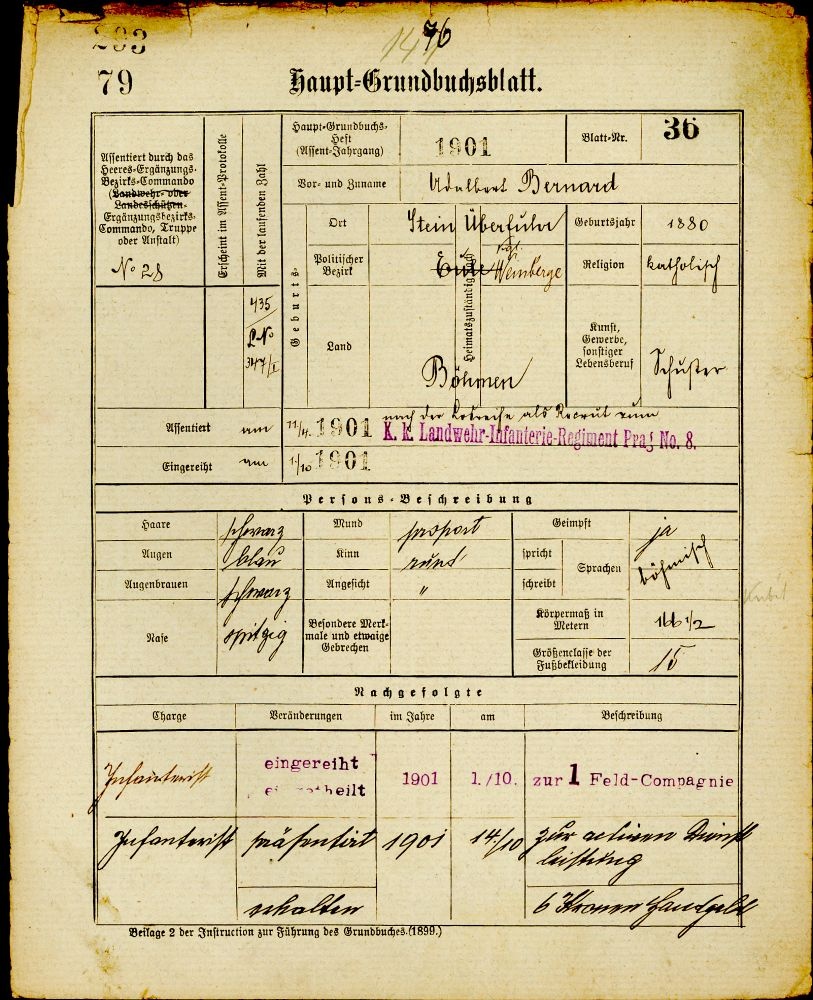 203
76
147
79
Haupt-Grundbuchsblatt.
Assentiert durch das
Heeres-Ergänzungs-
Bezirks-Commando
(Landwehr- oder
Landesschützen-
Ergänzungsbezirks-
Commando, Truppe
oder Anstalt)
No 28
Erscheint im Assent-Protokolle
Mit der laufenden Zahl
Haupt-Grundbuchs-
Heft
(Assent-Jahrgang)
1901
Blatt-Nr.
36
Vor- und Zuname
Adalbert Bernard
Geburts-
Ort
Stein Überfuhr
Heimatszuständigkeit
Geburtsjahr
1880
Politischer
Bezirk
Eule
Kgl.
Weinberge
Religion
katholisch
435
L No
347/I
Land
Böhmen
Kunst,
Gewerbe,
sonstiger
Lebensberuf
Schuster
Assentiert
am
11/4.
1901
nach der Losreihe als Recrut zum
K. k. Landwehr-Infanterie-Regiment Prag No. 8.
Eingereiht
am
1/10
1901
Persons-Beschreibung
Haare
schwarz
Mund
proport
Geimpft
ja
Augen
blau
Kinn
rund
spricht
Sprachen
böhmisch
Augenbrauen
schwarz
Angesicht
"
schreibt
Nase
spitzig
Besondere Merk-
male und etwaige
Gebrechen
Körpermaß in
Metern
166 1/2
Größenclasse der
Fußbekleidung
15
Nachgefolgte
Charge
Veränderungen
im Jahre
am
Beschreibung
Infanterist
eingereiht
1901
1./10.
zur 1 Feld-Compagnie
Infanterist
präsentirt
1901
14/10
zur activen Dienst
leistung
erhalten
6 Kronen Handgeld
Beilage 2 der Instruction zur Führung des Grundbuches. (1899.)